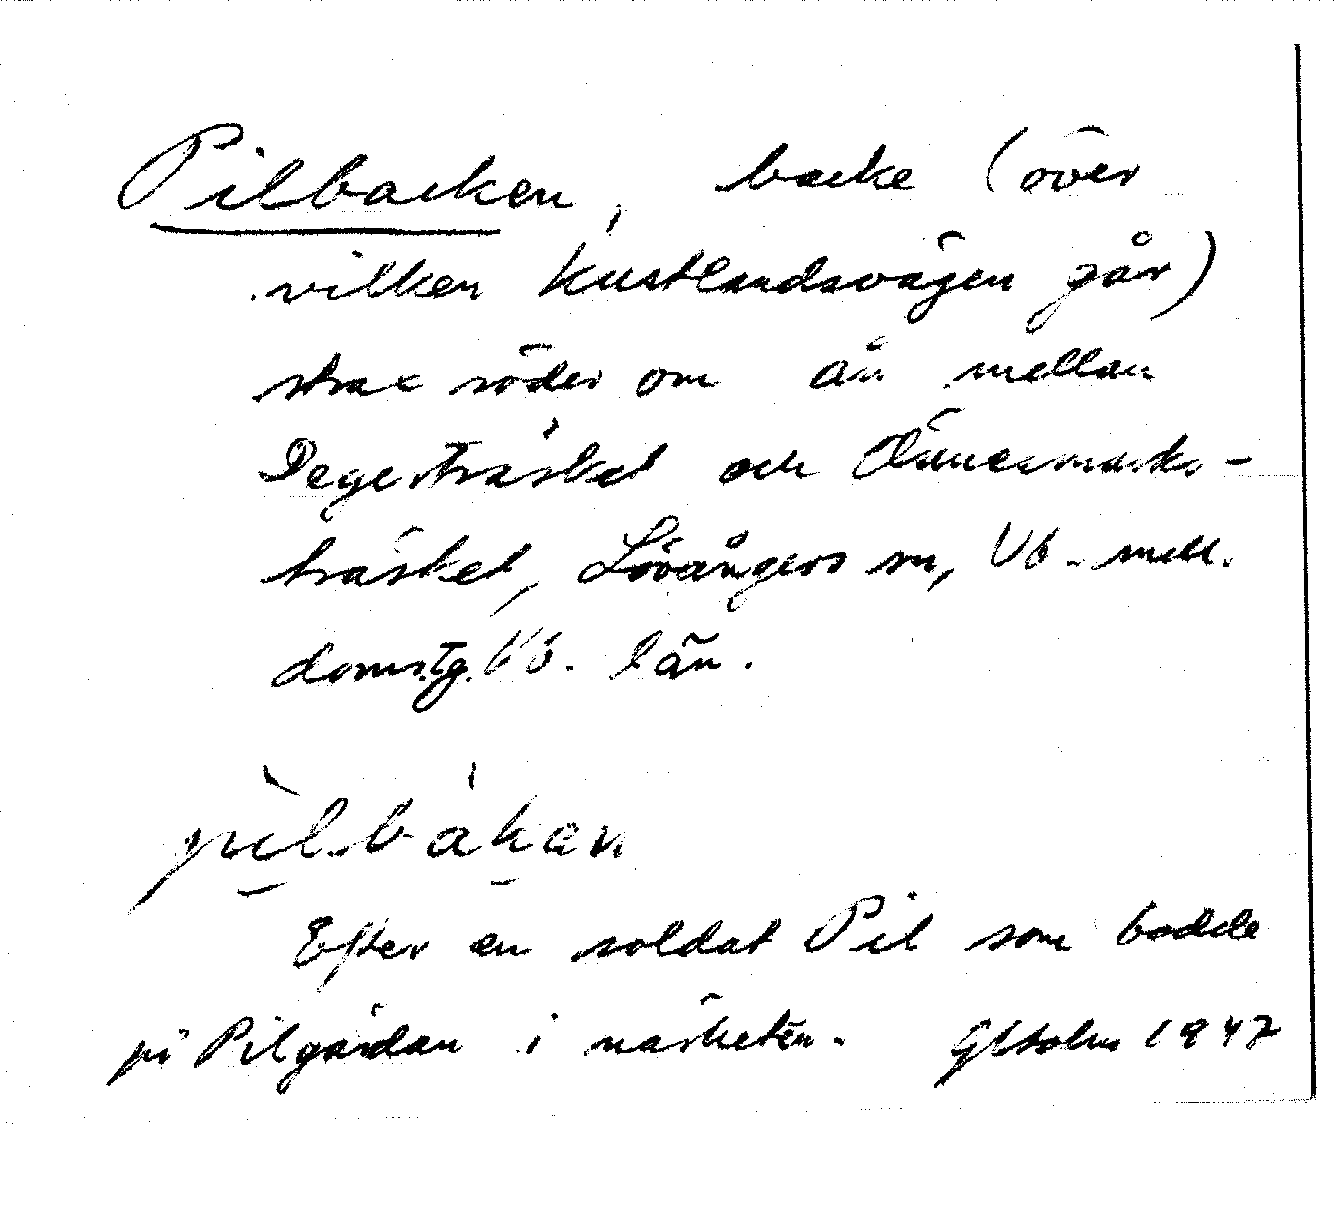 Pilbacken, backe (över
vilken Kustlandsvägen går)
strax söder om ån mellan
Degerträsket och Önnesmarks-
träsket, Lövångers sn, Vb. mell.
domstg. Vb. län.
pìlbákan
Efter en soldat Pil som bodde
på Pilgårdan i närheten. GHolm 1947